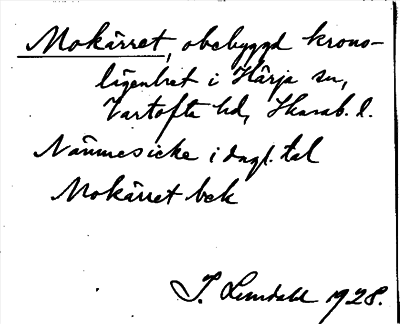 Mokärret, obebyggd krono-
lägenhet i Härja sn,
Vartofta hd, Skarab. l.
Nämnes icke i dagl. tal
Mokärret bek
J. Lundahl 1928.